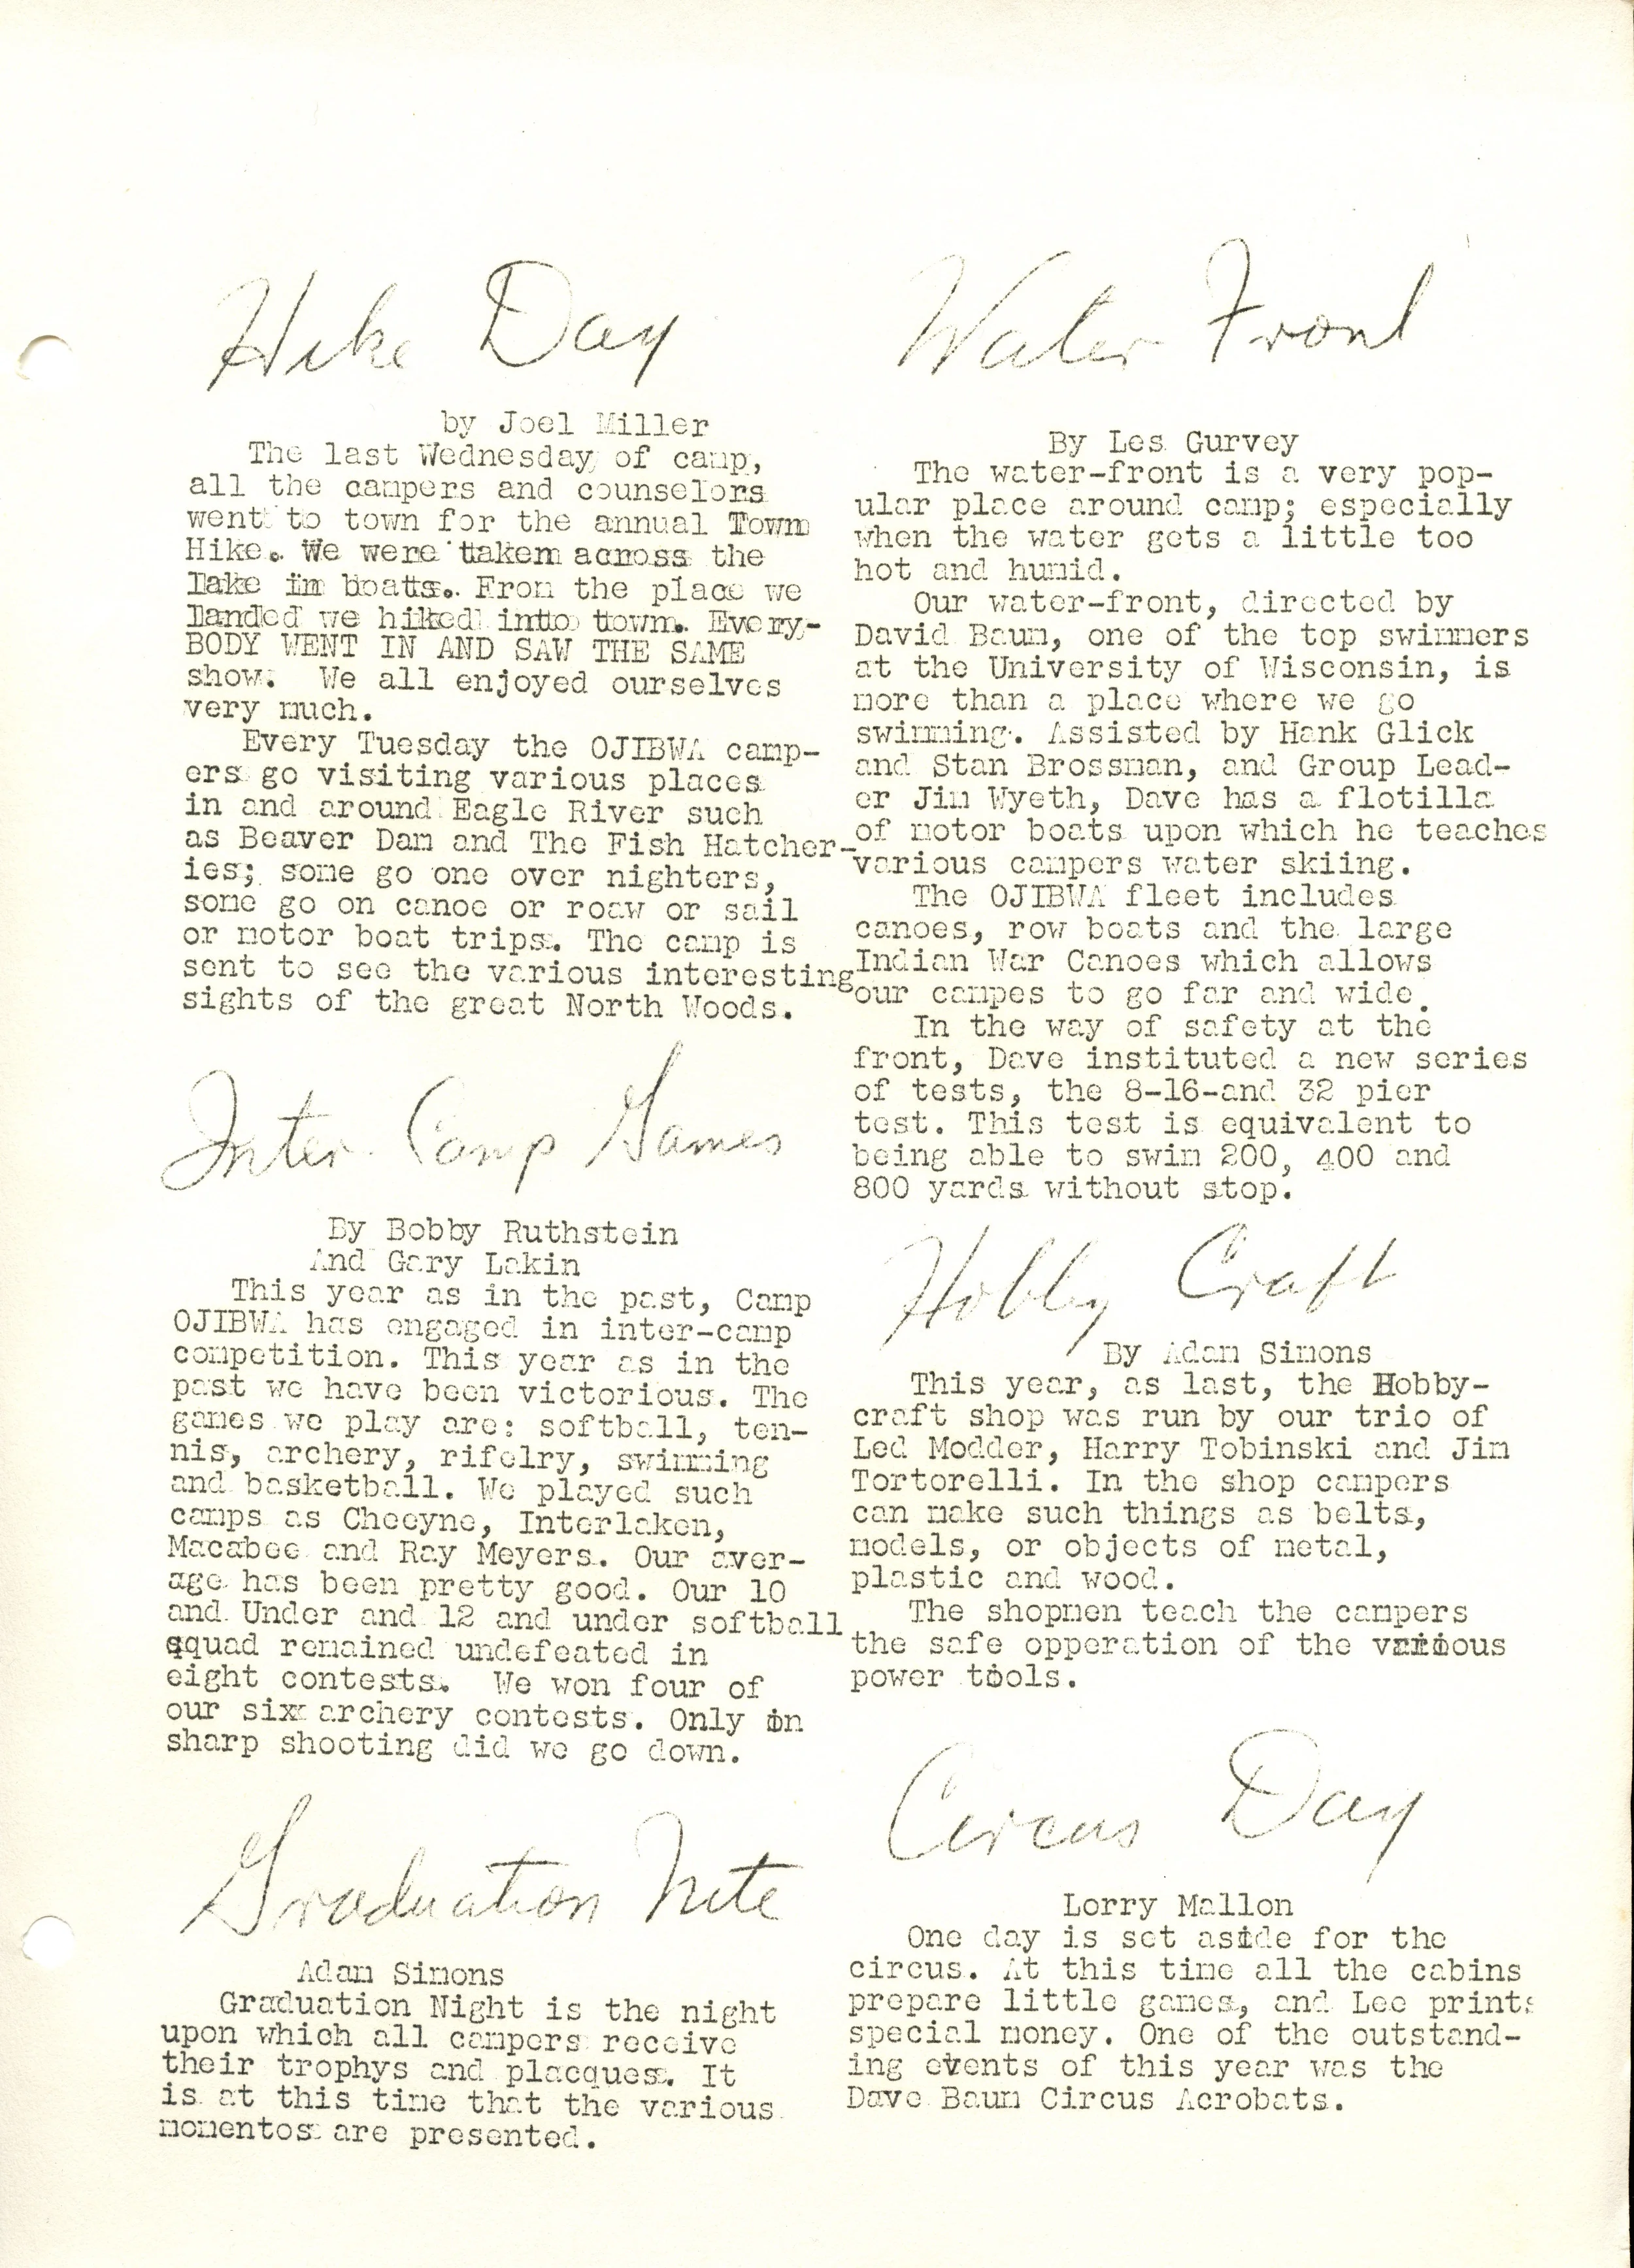 Hike Day
by Joel Miller
The last Wednesday of camp,
all the campers and counselors
went to town for the annual Town
Hike. We were takem across the
lake im boats. From the place we
landed we hiked into town. Every-
BODY WENT IN AND SAW THE SAME
show. We all enjoyed ourselves
very much.
Every Tuesday the OJIBWA camp-
ers go visiting various places
in and around Eagle River such
as Beaver Dam and The Fish Hatcher-
ies; some go one over nighters,
some go on canoe or roaw or sail
or motor boat trips. The camp is
sent to see the various interesting
sights of the great North Woods.
Inter-Camp Games
By Bobby Ruthstein
And Gary Lakin
This year as in the past, Camp
OJIBWA has engaged in inter-camp
competition. This year as in the
past we have been victorious. The
games we play are: softball, ten-
nis, archery, rifelry, swimming
and basketball. We played such
camps as Cheeyne, Interlaken,
Macabee and Ray Meyers. Our aver-
age has been pretty good. Our 10
and Under and 12 and under softball
squad remained undefeated in
eight contests. We won four of
our six archery contests. Only in
sharp shooting did we go down.
Graduation Nite
Adam Simons
Graduation Night is the night
upon which all campers receive
their trophys and placques. It
is at this time that the various
momentos are presented.
Water Front
By Les Gurvey
The water-front is a very pop-
ular place around camp; especially
when the water gets a little too
hot and humid.
Our water-front, directed by
David Baum, one of the top swimmers
at the University of Wisconsin, is
more than a place where we go
swimming. Assisted by Hank Glick
and Stan Brossman, and Group Lead-
er Jim Wyeth, Dave has a flotilla
of motor boats upon which he teaches
various campers water skiing.
The OJIBWA fleet includes
canoes, row boats and the large
Indian War Canoes which allows
our campes to go far and wide.
In the way of safety at the
front, Dave instituted a new series
of tests, the 8-16-and 32 pier
test. This test is equivalent to
being able to swim 200, 400 and
800 yards without stop.
Hobby Craft
By Adam Simons
This year, as last, the Hobby-
craft shop was run by our trio of
Led Modder, Harry Tobinski and Jim
Tortorelli. In the shop campers
can make such things as belts,
models, or objects of metal,
plastic and wood.
The shopmen teach the campers
the safe opperation of the various
power tools.
Circus Day
Lorry Mallon
One day is set aside for the
circus. At this time all the cabins
prepare little games, and Lee prints
special money. One of the outstand-
ing events of this year was the
Dave Baum Circus Acrobats.